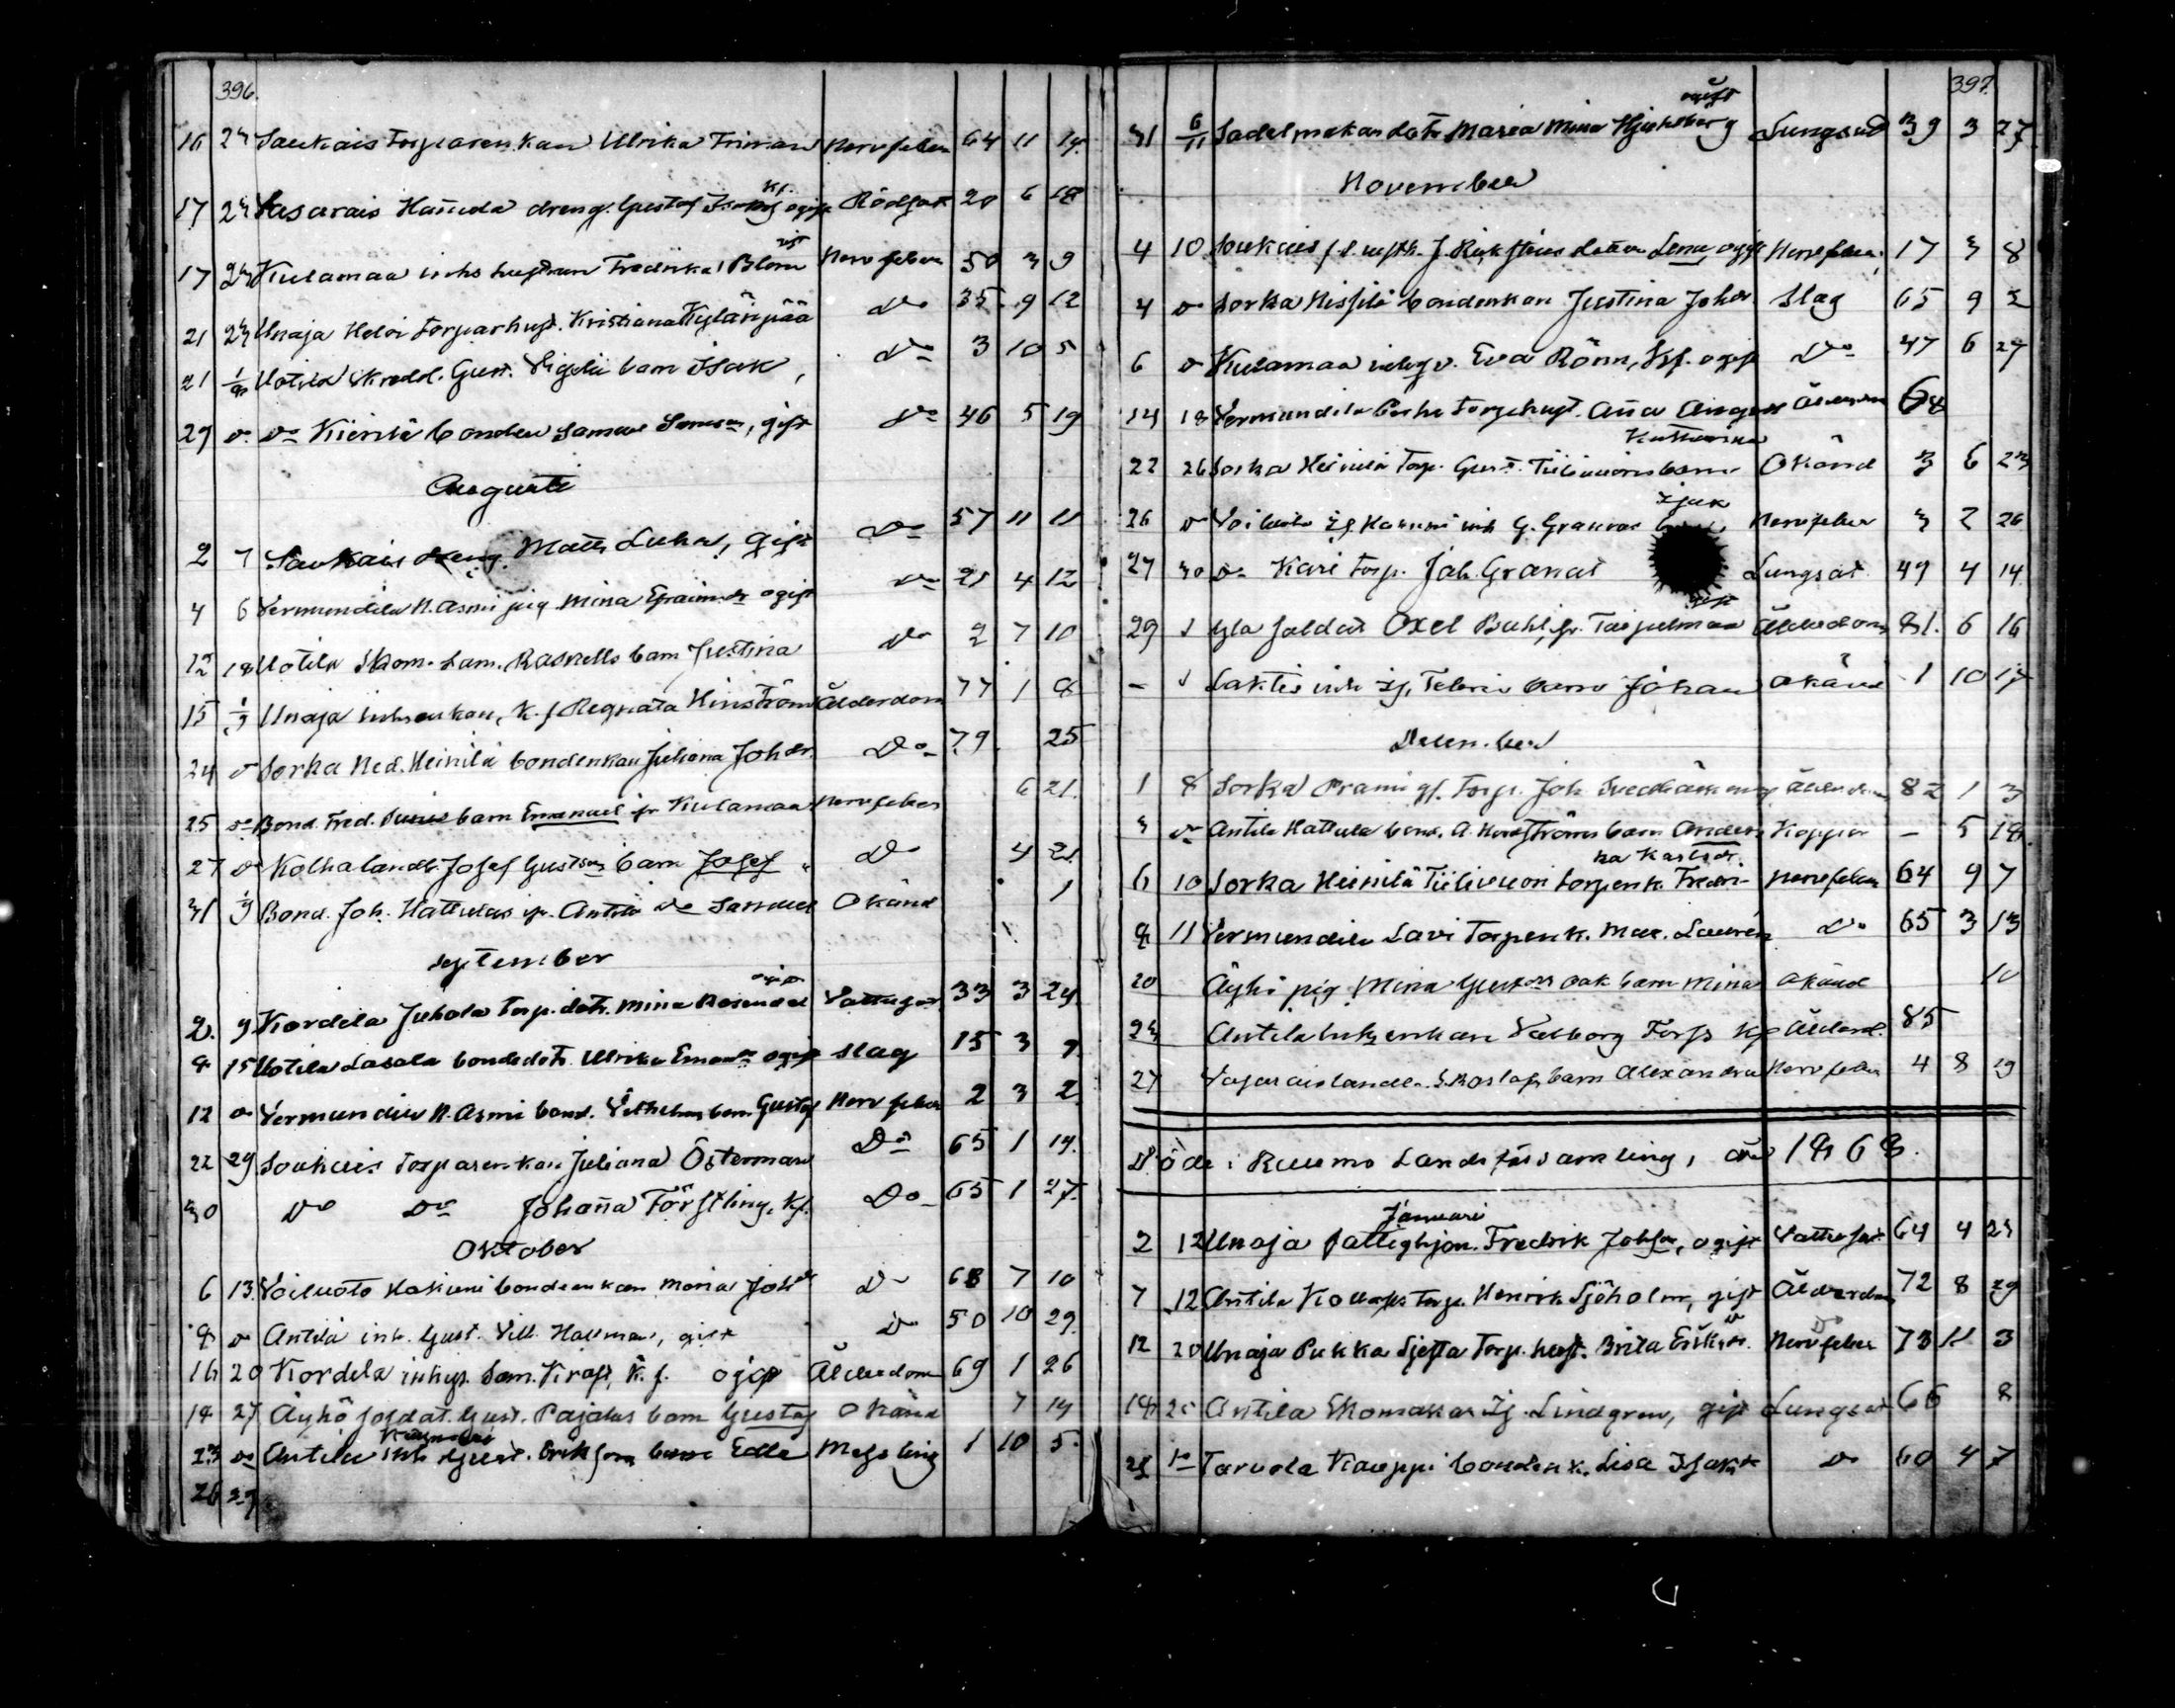 396.
16 23 Saukais torparenkan Ulrika Friman Nervfeber 64 11 14
17 23 Vasarais Hannula dreng. Gustaf Kf. ogift Rödsot 20 6 18
17 23 Kulamaa inhs hustrun Fredrika Blom gift Nervfeber 50 3 9
21 23 Unaja Heloi torparhust. Kristiana Kylänpää Do 35 9 12
21 1/8 Uotila Skredd. Gust. barn Isak, Do 3 10 5
29 Do Do Kierilä bonden Samuel Samson, gift Do 46 5 19
Augusti
2 7 Saukais dreng. Matts Luha, gift Do 57 11 11
4 6 Vermundila N. Asmi pig Mina Efraimdr ogift Do 21 4 12
12 18 Uotila Skom. Sam. Rasnells barn Justina Do 2 7 10
15 1/9 Unaja inhsenkan, K. f Regnata Hinström Ålderdom 77 1 8
24 Do Sorka Ned. Heinilä bondenkan Juliana Johdr. Do 79 25
25 Do Bond. Fred. barn Emanuel fr Kulamaa Nervfeber 6 21
27 Do Kolhalandb Josef Gustson barn Josef Do 4 21
31 1/9 Bond. Joh. Hattulas fr. Antila Do Samuel Okänd 1
September
2. 9 Kordela Juhola torp. dotr. Mina Rosendal ogift Vattusot 33 3 24
8 15 Uotila Lasala bondedotr Ulrika Emandr ogift Slag 15 3 7
12 Do Vermundila N. Asmi bond. Vilhelms barn Gustaf Nervfeber 2 3 2
22 29 Soukais torparenkan Juliana Österman Do 65 1 14
30 Do Do Johanna Förstling, Kf. Do 65 1 27
Oktober
6 13 Voiluoto Hakuni bondenkan Maria Johdr Do 68 7 10
8 Do Antila inh. Gust. Vilh. Hallman, gift Do 50 10 29
16 20 Kordela inhys. Sam. Kraft, K. f. ogift Ålderdom 69 1 26
18 27 Äyhö soldat. Gust. Pajalas barn Gustaf Okänd 7 14
23 Do Antila inh Gust. Eriksson barn Edla Messling 1 10 5
26 29
397.
31 6/11 Sadelmakar dotr Maria Mina ogift Lungsot 39 3 27
November
4 10 Soukais dotter Lena ogift Nervfeber 17 3 8
4 Do Sorka Nissilä bondenkan Justina Johdr. Slag 65 9 2
6 Do Kulamaa inhys. Eva Rönn, Kf. ogift Do 47 6 27
14 18 Vermundila torphust. Anna Ålderdom 68
22 26 Sorka Heinilä torp. Gust. Tiilivuoris barn Katharina Okänd 3 6 23
26 Do Voiluoto Hakuni inh G. Granros barn Isak Nervfeber 3 2 26
27 30 Do Kari torp. Joh. Granat Lungsot 49 4 14
29 Do Yla soldat Axel Buhl, fr. gift Ålderdom 81 6 16
- Do Laktis inh barn Johan Okänd 1 10 17
December
1 8 Sorka Prami gf. torp. Joh. Ålderdom 82 1 3
3 Do Antila Hattula bond. A. barn Anders Koppor - 5 18
6 10 Sorka Heinilä Tiilivuori torpenk. Fredrika Karlsdr. Nervfeber 64 9 7
8 11 Vermundila Lavi torpenk. Mar. Laurén Do 65 3 13
20 Äyhö pig Mina Gustdr oäk barn Mina Okänd 10
23 Antila inhysenkan Valborg Forss Kf Ålderd. 85
27 Vasarais landb. barn Alexandra Nervfeber 4 8 19
Döde i Raumo Landsförsamling, år 1868.
Januari
2 12 Unaja fattighjon. Fredrik Johsson, ogift Vattusot 64 4 23
7 12 Antila torp. Henrik Sjöholm, gift Ålderdom 72 8 29
12 20 Unaja Pukka torp. hust. Brita Eriksdr. Nervfeber 73 11 3
18 20 Antila Skomakar Is. Lindgren, gift Lungsot 66 8
28 Do Tarvola Kauppi bondenk. Lisa Isaksdr Do 60 4 7